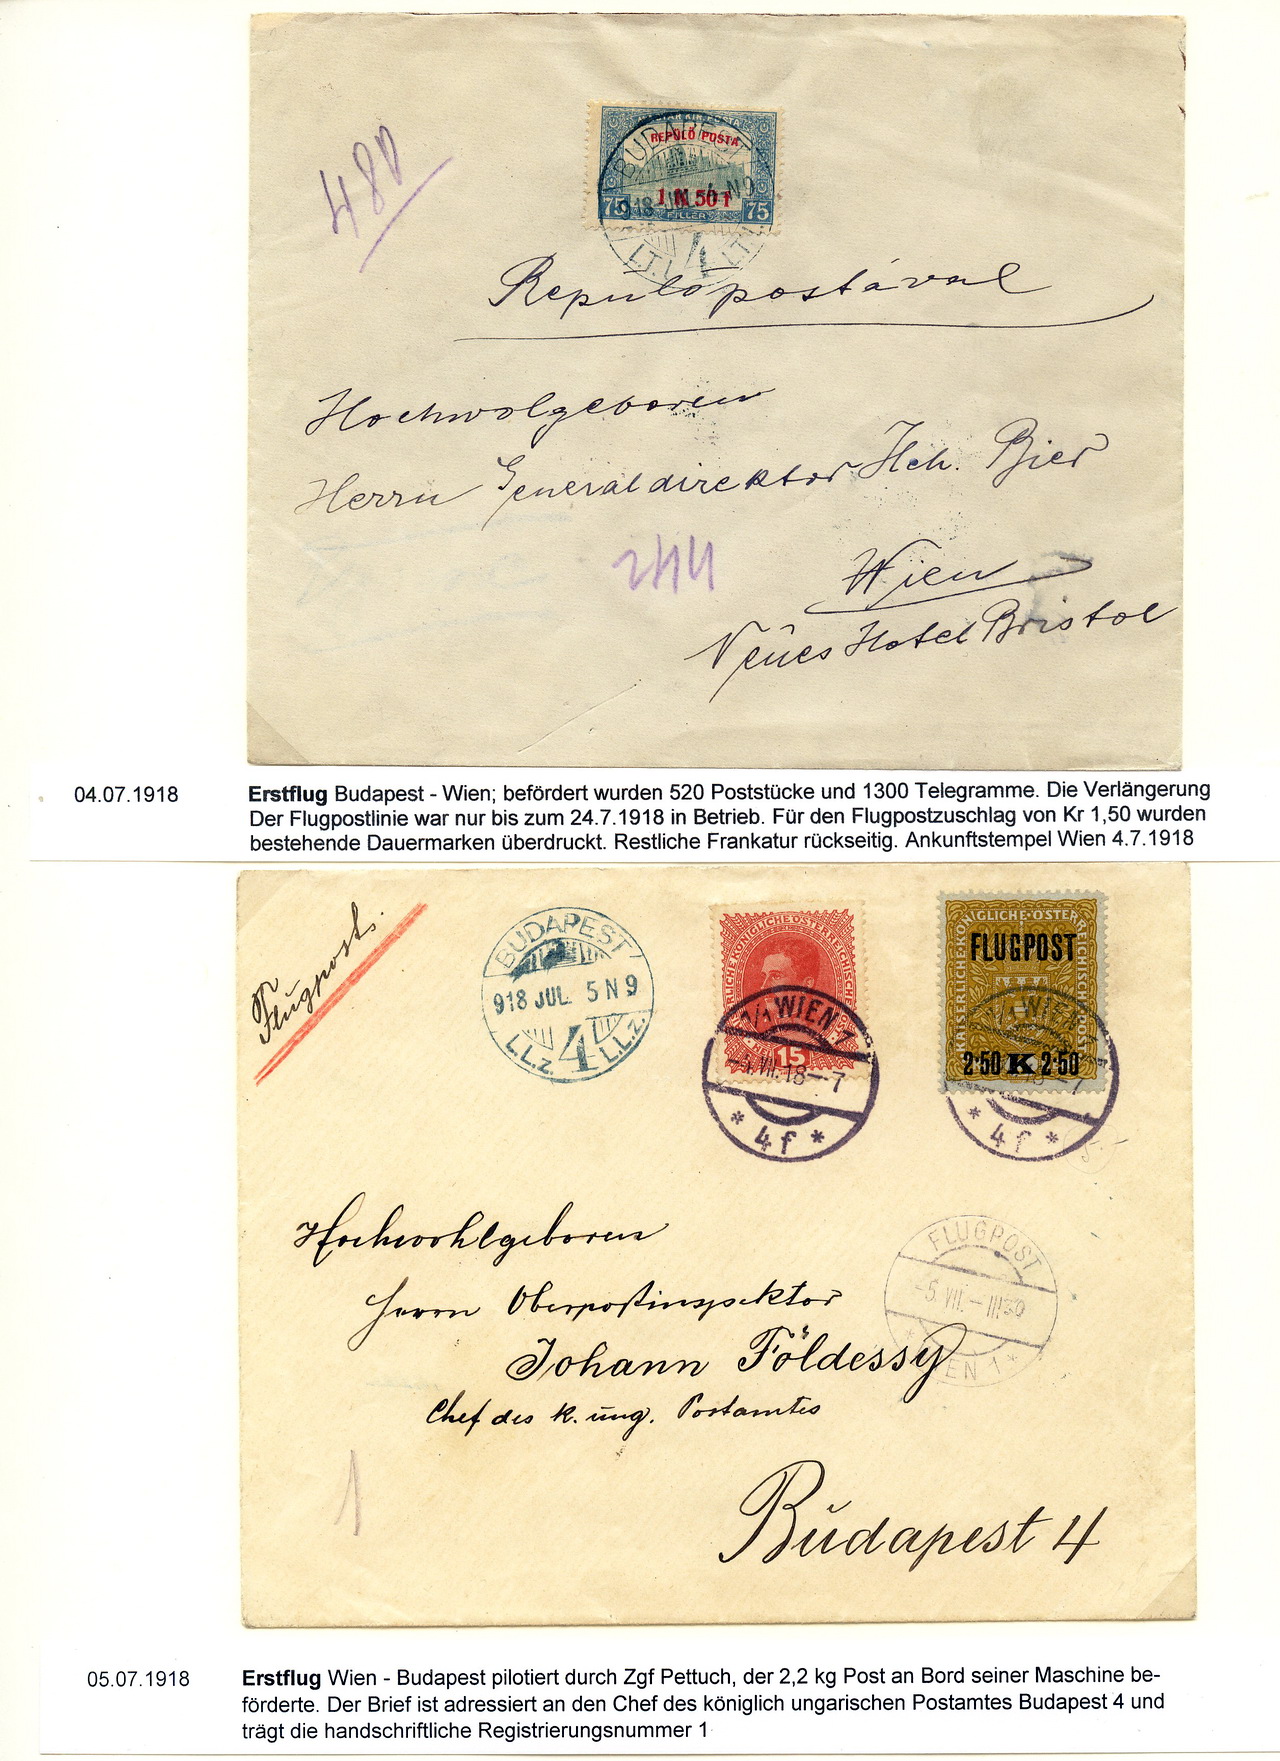 480
MAGYAR KIR. POSTA
REPÜLŐ POSTA
1 K 50 f
75 FILLER 75
BUDAPEST
918 JUL. 4 N 9
4
Repülőpostával
Hochwolgeboren
Herrn Generaldirektor Hch. Bier
244
Wien
Neues Hotel Bristol
04.07.1918
Erstflug Budapest - Wien; befördert wurden 520 Poststücke und 1300 Telegramme. Die Verlängerung
Der Flugpostlinie war nur bis zum 24.7.1918 in Betrieb. Für den Flugpostzuschlag von Kr 1,50 wurden
bestehende Dauermarken überdruckt. Restliche Frankatur rückseitig. Ankunftstempel Wien 4.7.1918
Flugpost.
BUDAPEST
918 JUL. 5 N 9
L.L.z. 4 L.L.z.
15
1/1 WIEN 1
-5.VII.18-7
* 4f *
KAISERLICHE KÖNIGLICHE ÖSTERREICHISCHE POST
FLUGPOST
2·50 K 2·50
1/1 WIEN 1
18-7
* 4f *
FLUGPOST
-5.VII.-III30
* WIEN 1 *
Hochwohlgeboren
Herrn Oberpostinspektor
Johann Földessy
Chef des k. ung. Postamtes
1
Budapest 4
05.07.1918
Erstflug Wien - Budapest pilotiert durch Zgf Pettuch, der 2,2 kg Post an Bord seiner Maschine be-
förderte. Der Brief ist adressiert an den Chef des königlich ungarischen Postamtes Budapest 4 und
trägt die handschriftliche Registrierungsnummer 1